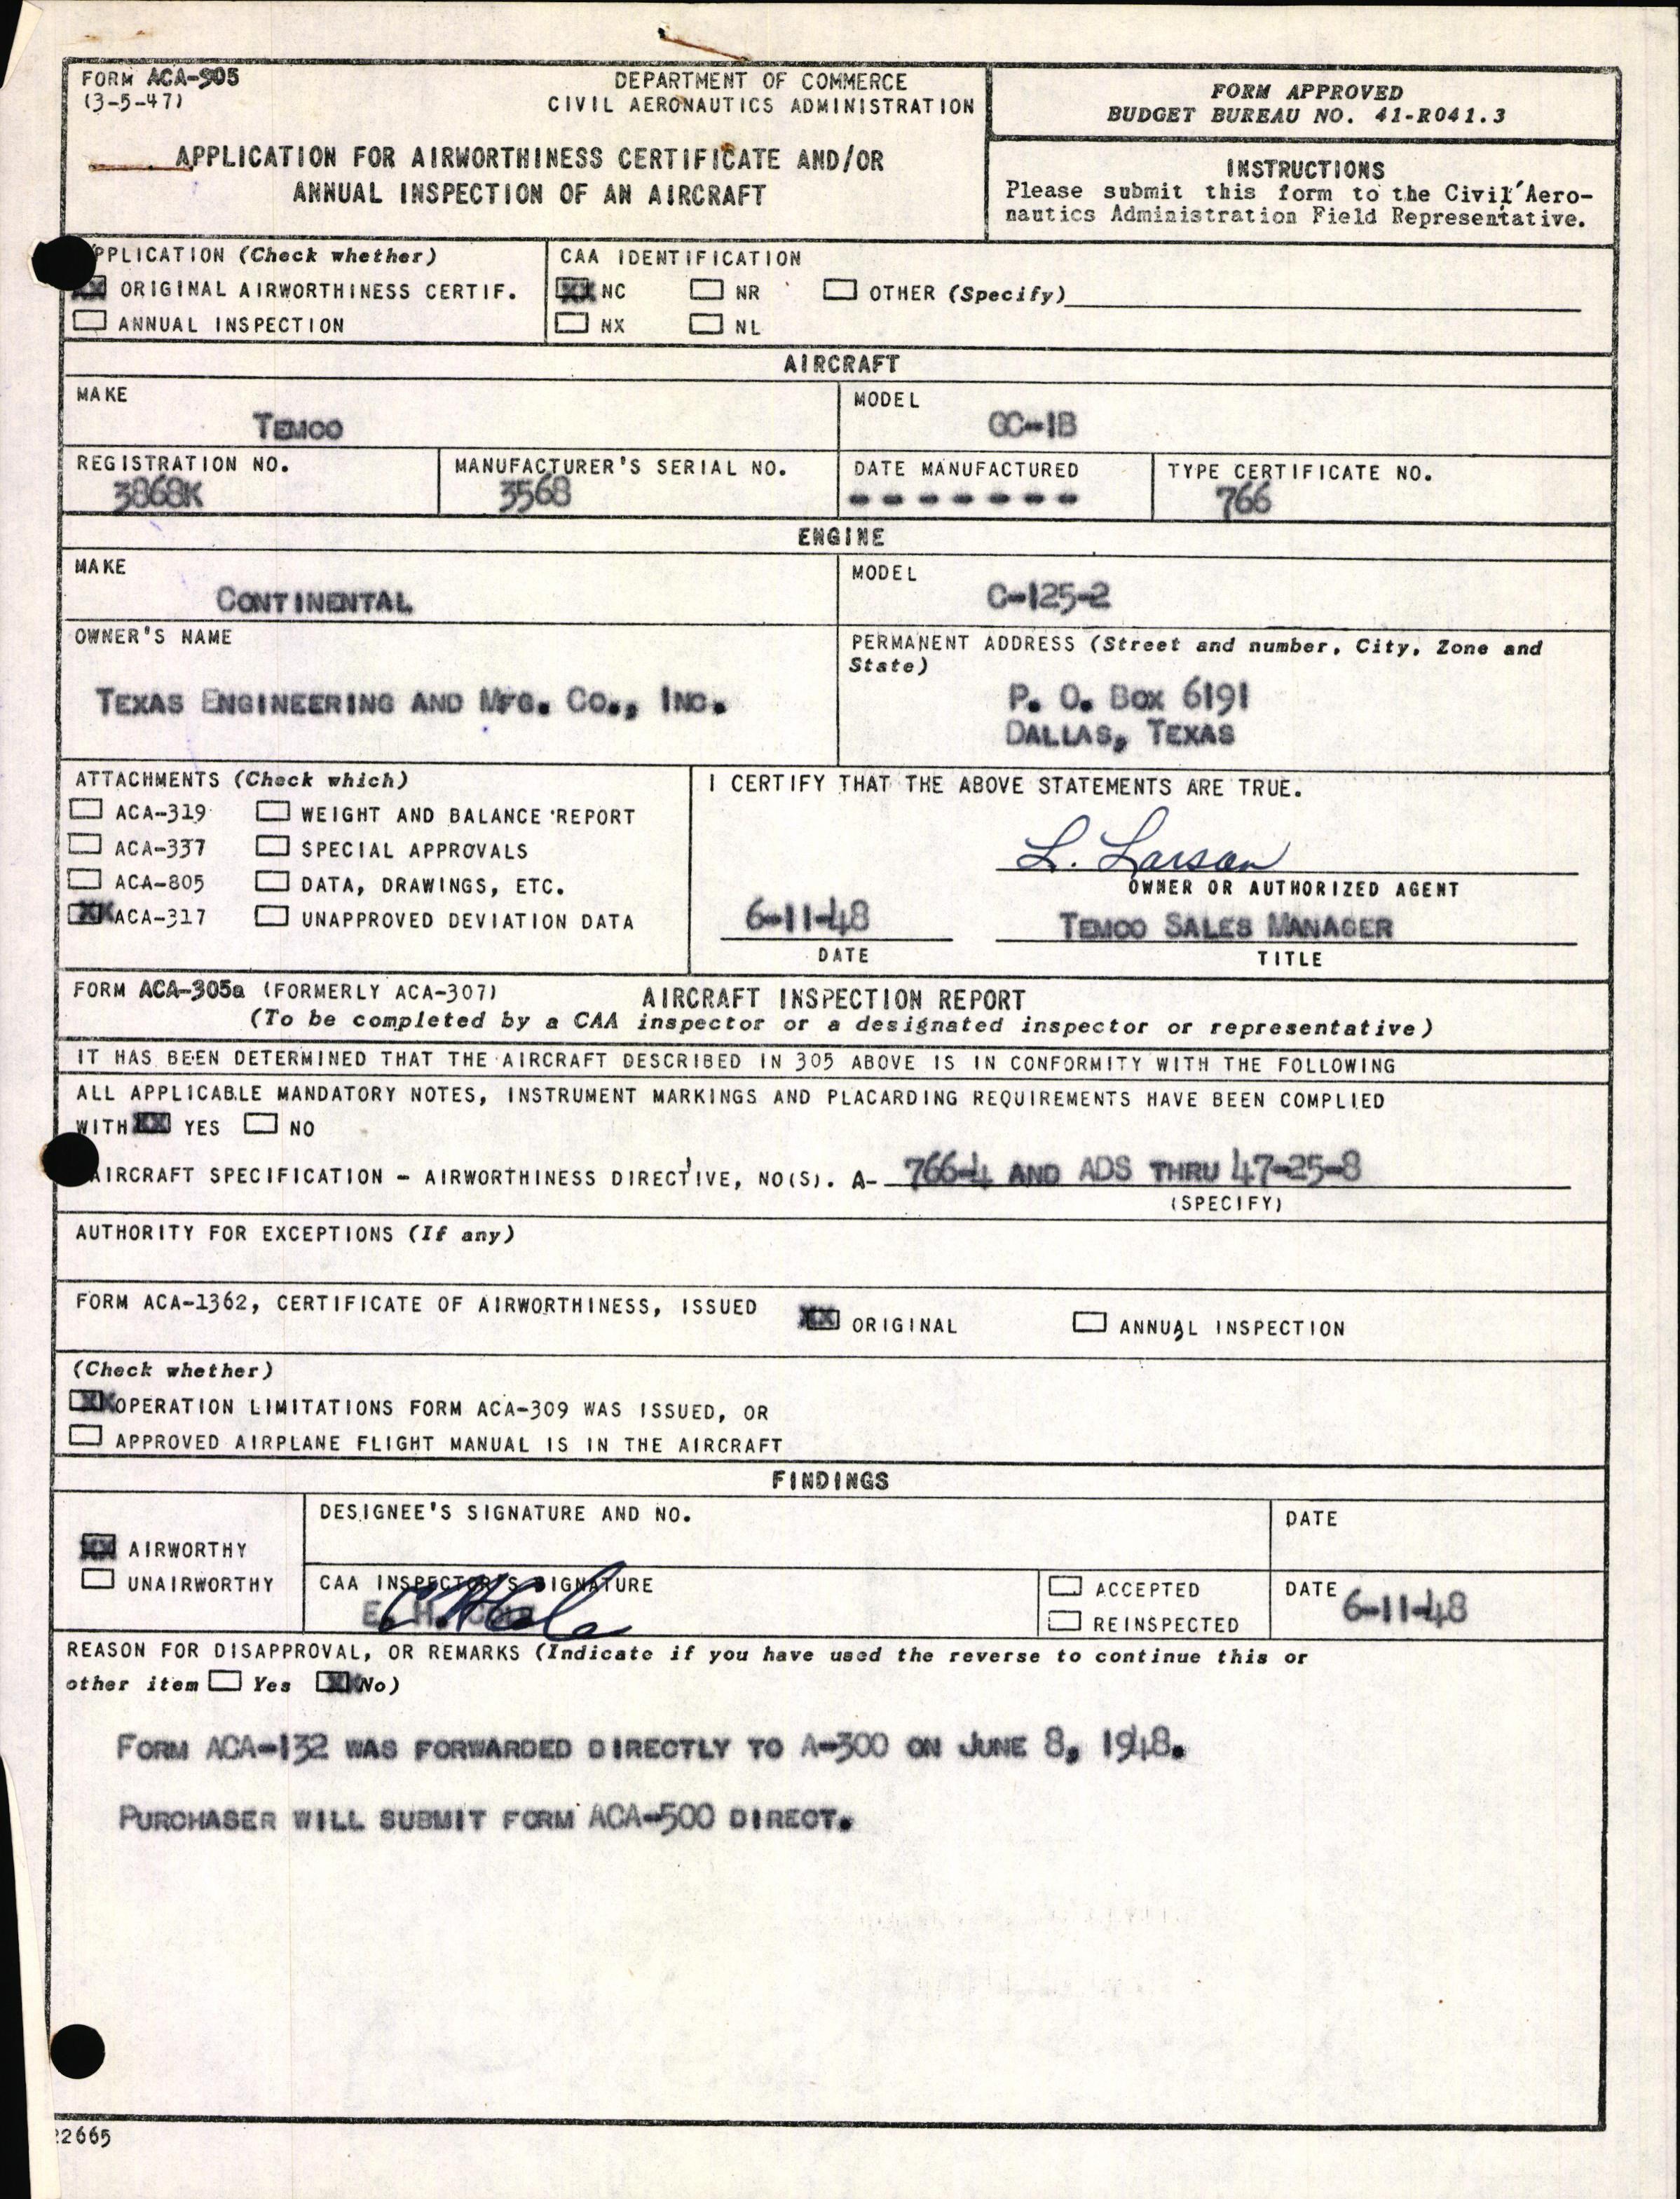 FORM ACA-305
(3-5-47)
DEPARTMENT OF COMMERCE
CIVIL AERONAUTICS ADMINISTRATION
APPLICATION FOR AIRWORTHINESS CERTIFICATE AND/OR
ANNUAL INSPECTION OF AN AIRCRAFT
FORM APPROVED
BUDGET BUREAU NO. 41-R041.3
INSTRUCTIONS
Please submit this form to the Civil Aero-
nautics Administration Field Representative.
PPLICATION (Check whether)
XX ORIGINAL AIRWORTHINESS CERTIF.
ANNUAL INSPECTION
CAA IDENTIFICATION
XX NC NR OTHER (Specify)
NX NL
AIRCRAFT
MAKE
TEMCO
MODEL
GC-1B
REGISTRATION NO.
3868K
MANUFACTURER'S SERIAL NO.
3568
DATE MANUFACTURED
- - - - - - -
TYPE CERTIFICATE NO.
766
ENGINE
MAKE
CONTINENTAL
MODEL
C-125-2
OWNER'S NAME
TEXAS ENGINEERING AND MFG. CO., INC.
PERMANENT ADDRESS (Street and number, City, Zone and
State)
P. O. BOX 6191
DALLAS, TEXAS
ATTACHMENTS (Check which)
ACA-319 WEIGHT AND BALANCE REPORT
ACA-337 SPECIAL APPROVALS
ACA-805 DATA, DRAWINGS, ETC.
XX ACA-317 UNAPPROVED DEVIATION DATA
I CERTIFY THAT THE ABOVE STATEMENTS ARE TRUE.
L. Larson
OWNER OR AUTHORIZED AGENT
6-11-48
DATE
TEMCO SALES MANAGER
TITLE
FORM ACA-305a (FORMERLY ACA-307) AIRCRAFT INSPECTION REPORT
(To be completed by a CAA inspector or a designated inspector or representative)
IT HAS BEEN DETERMINED THAT THE AIRCRAFT DESCRIBED IN 305 ABOVE IS IN CONFORMITY WITH THE FOLLOWING
ALL APPLICABLE MANDATORY NOTES, INSTRUMENT MARKINGS AND PLACARDING REQUIREMENTS HAVE BEEN COMPLIED
WITH XX YES NO
AIRCRAFT SPECIFICATION - AIRWORTHINESS DIRECTIVE, NO(S). A- 766-4 AND ADS THRU 47-25-8
(SPECIFY)
AUTHORITY FOR EXCEPTIONS (If any)
FORM ACA-1362, CERTIFICATE OF AIRWORTHINESS, ISSUED XX ORIGINAL ANNUAL INSPECTION
(Check whether)
XX OPERATION LIMITATIONS FORM ACA-309 WAS ISSUED, OR
APPROVED AIRPLANE FLIGHT MANUAL IS IN THE AIRCRAFT
FINDINGS
XX AIRWORTHY
UNAIRWORTHY
DESIGNEE'S SIGNATURE AND NO.
DATE
CAA INSPECTOR'S SIGNATURE
E. H.
ACCEPTED
REINSPECTED
DATE 6-11-48
REASON FOR DISAPPROVAL, OR REMARKS (Indicate if you have used the reverse to continue this or
other item Yes XX No)
FORM ACA-132 WAS FORWARDED DIRECTLY TO A-300 ON JUNE 8, 1948.
PURCHASER WILL SUBMIT FORM ACA-500 DIRECT.
22665